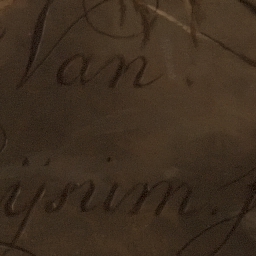 Van.
ijsum.